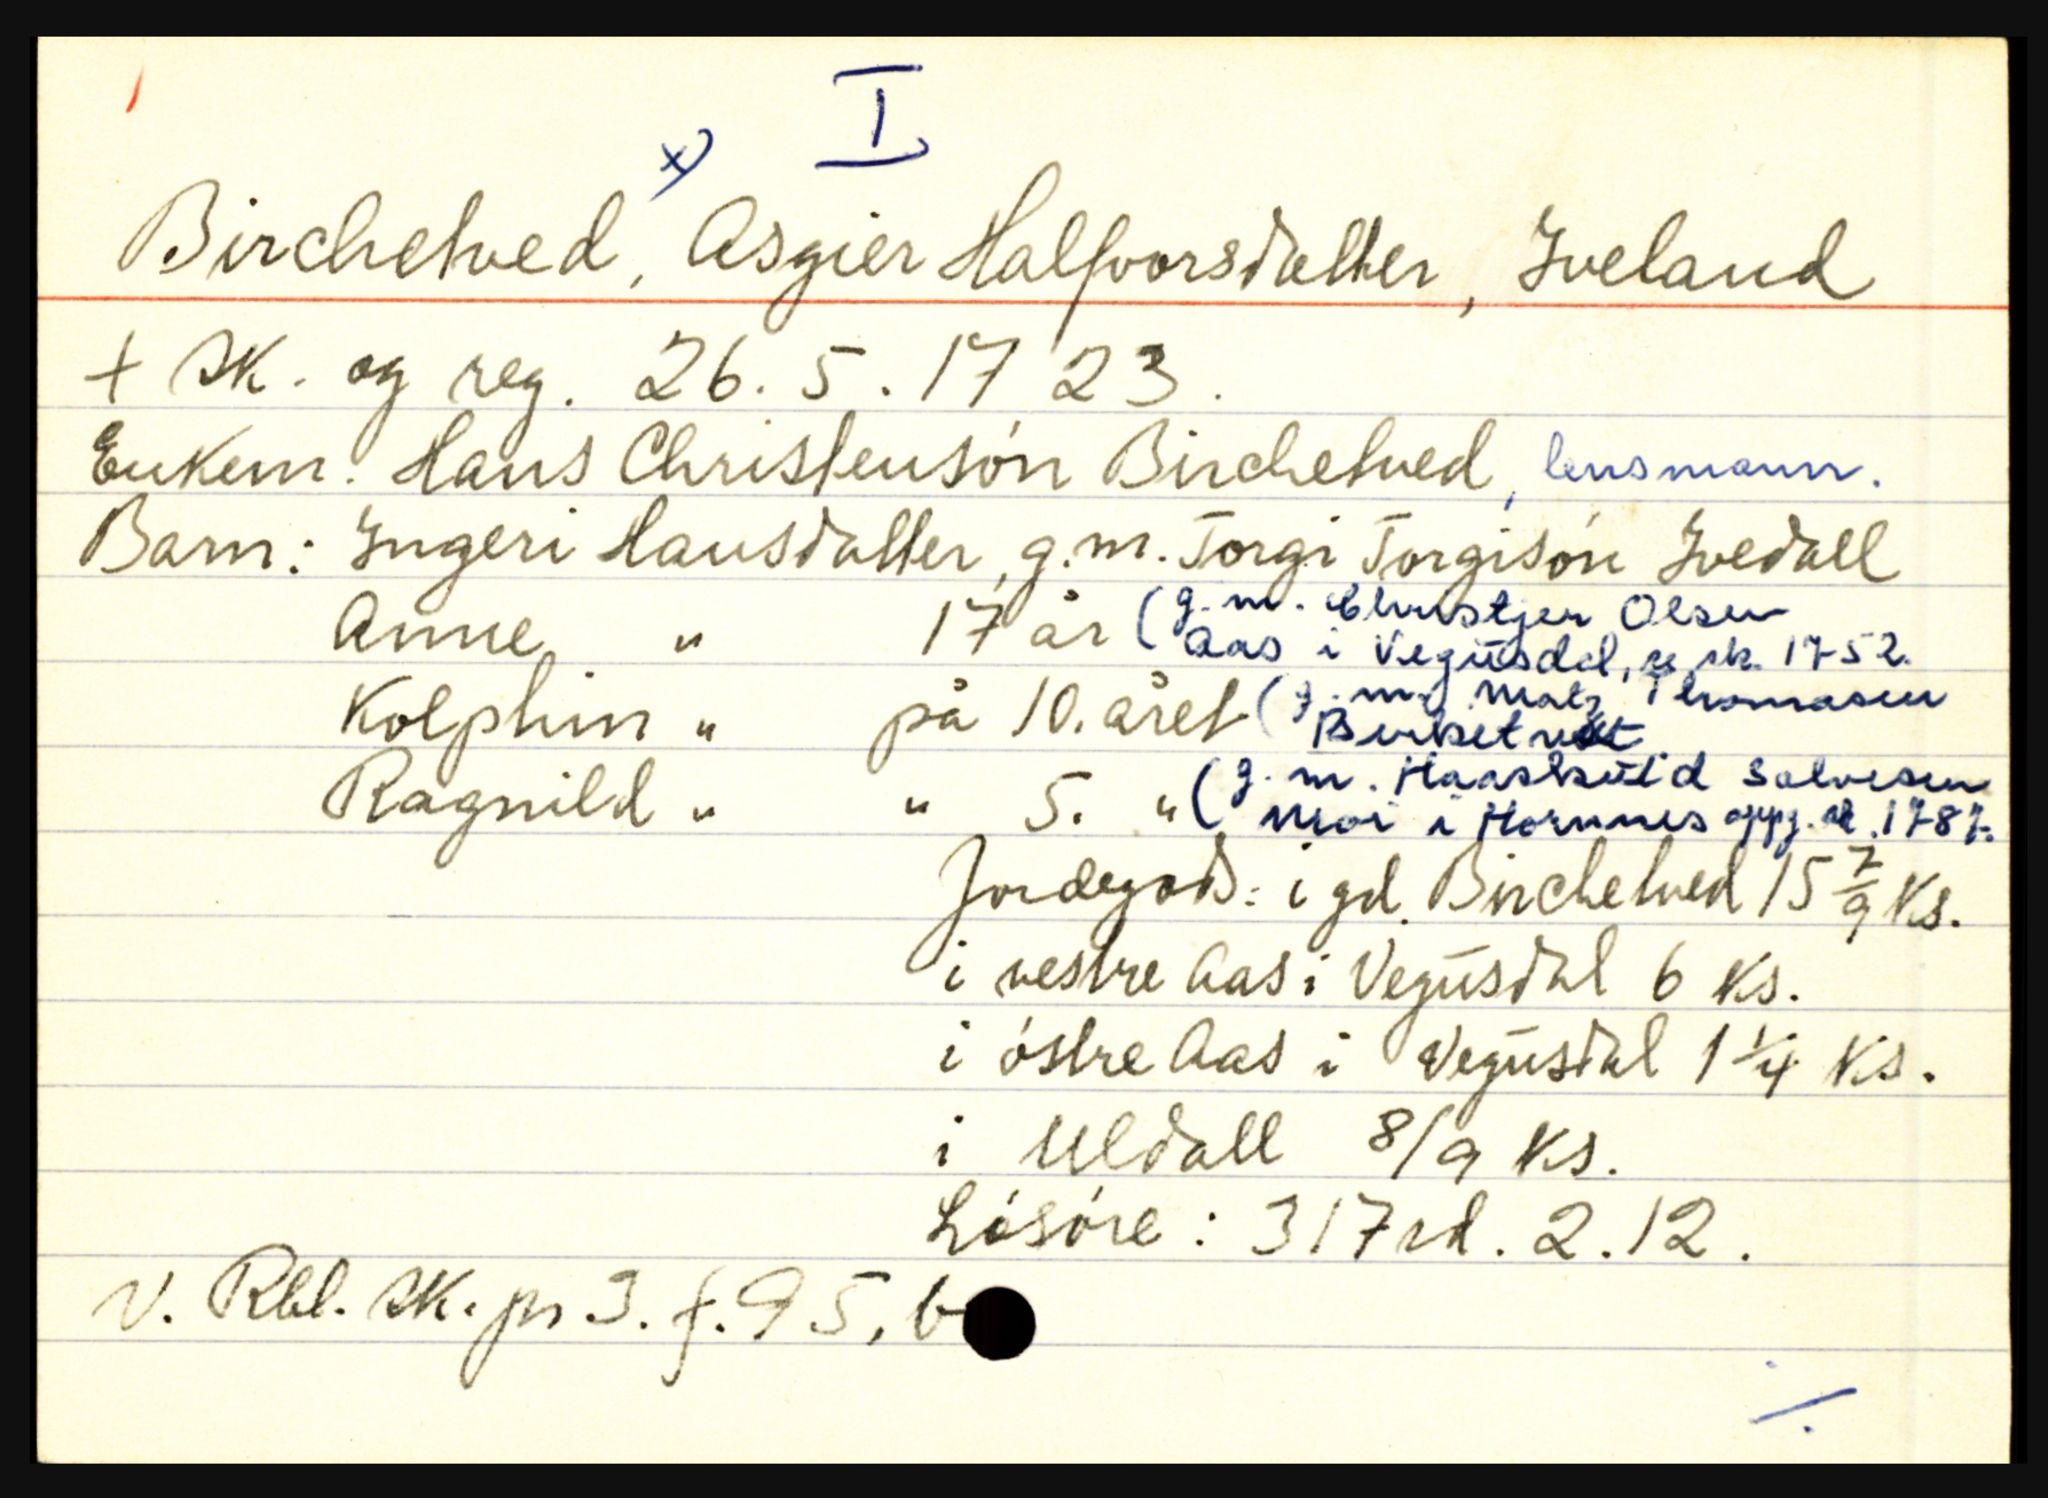 I
x)
Birchetved, Asgier Halfvorsdatter, Iveland
+ sk. og reg. 26.5.1723.
Enkem. Hans Christensón Birchetved, lensmann.
Barn: Ingeri Hansdatter, g.m. Torgi Torgisón Ivedall
Anne " 17 år (g.m. Christjer Olsen
Aas i Vegüsdal, sk. 1752.
Kolphin " på 10. året (g.m. Matz Thomasen
Birketvet
Ragnild " " 5. " (g.m. Haaskuld Salvesen
Moi i Hornnes oppg. sk. 1787.
Jordegods: i gd. Birchetved 15 7/9 Ks.
i vestre Aas i Vegüsdal 6 Ks.
i östre Aas i Vegüsdal 1 1/4 Ks.
i Uldall 8/9 Ks.
Lósóre: 317 rd. 2.12.
V. Rbl. sk. pr 3. f. 95, b